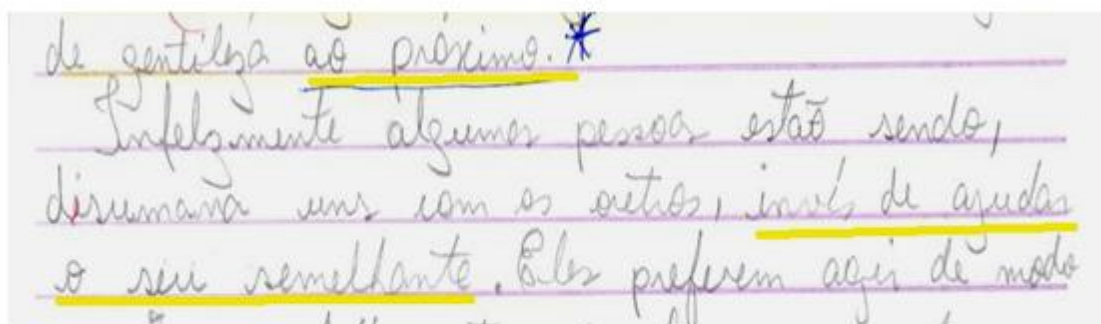 de gentileza ao próximo.*
Infelizmente algumas pessoas estão sendo,
disumana uns com os outros, invés de ajudar
o seu semelhante. Eles preferem agir de modo